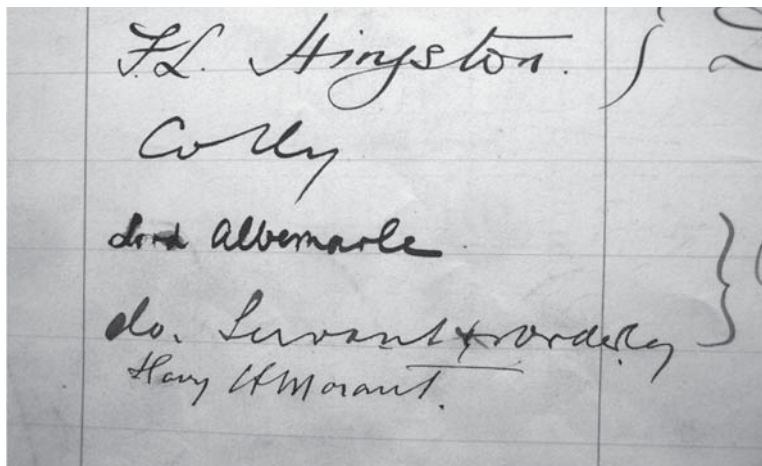 F.L. Hingston.
Colly
Lord Albemarle
do. Servant & orderly
Harry H Morant.